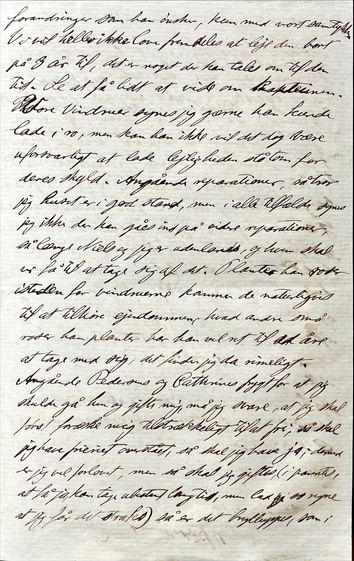 forandringer som han ønsker, kun med vort samtykke.
Vi vil heller ikke love fremdeles at leje den bort
på 3 år til, det er noget der kan tales om til den
tid. Se at få lidt at vide om
Vore Vindruer synes jeg gerne han kunde
lade i ro, men kan han ikke vil det dog være
uforsvarligt at lade lejligheden stå tom for
deres skyld. Angående reparationer, så tror
jeg huset er i god stand, men i alle tilfælde synes
jeg ikke der kan gås ind på videre reparationer,
så længe Niels og jeg er udenlands, og hvem skal
vi få til at tage sig af det. Planter han roser
istedenfor vindruerne kommer de naturligvis
til at tilhøre ejendommen, hvad andre små
roser han planter har han vel ret til ad åre
at tage med sig, det finder jeg da rimeligt.
Angående Pedersens og Cathrines frygt for at jeg
skulde gå hen og gifte mig, må jeg svare, at jeg skal
først til at fri, så skal
jeg have frieriet overstået, så skal jeg have ja; dermed
er jeg vel forlovet, men så skal jeg giftes, (i parentes,
at få ja kan tage ubestemt lang tid, men lad os regne
at jeg får det straks) så er det brylluppet, som i